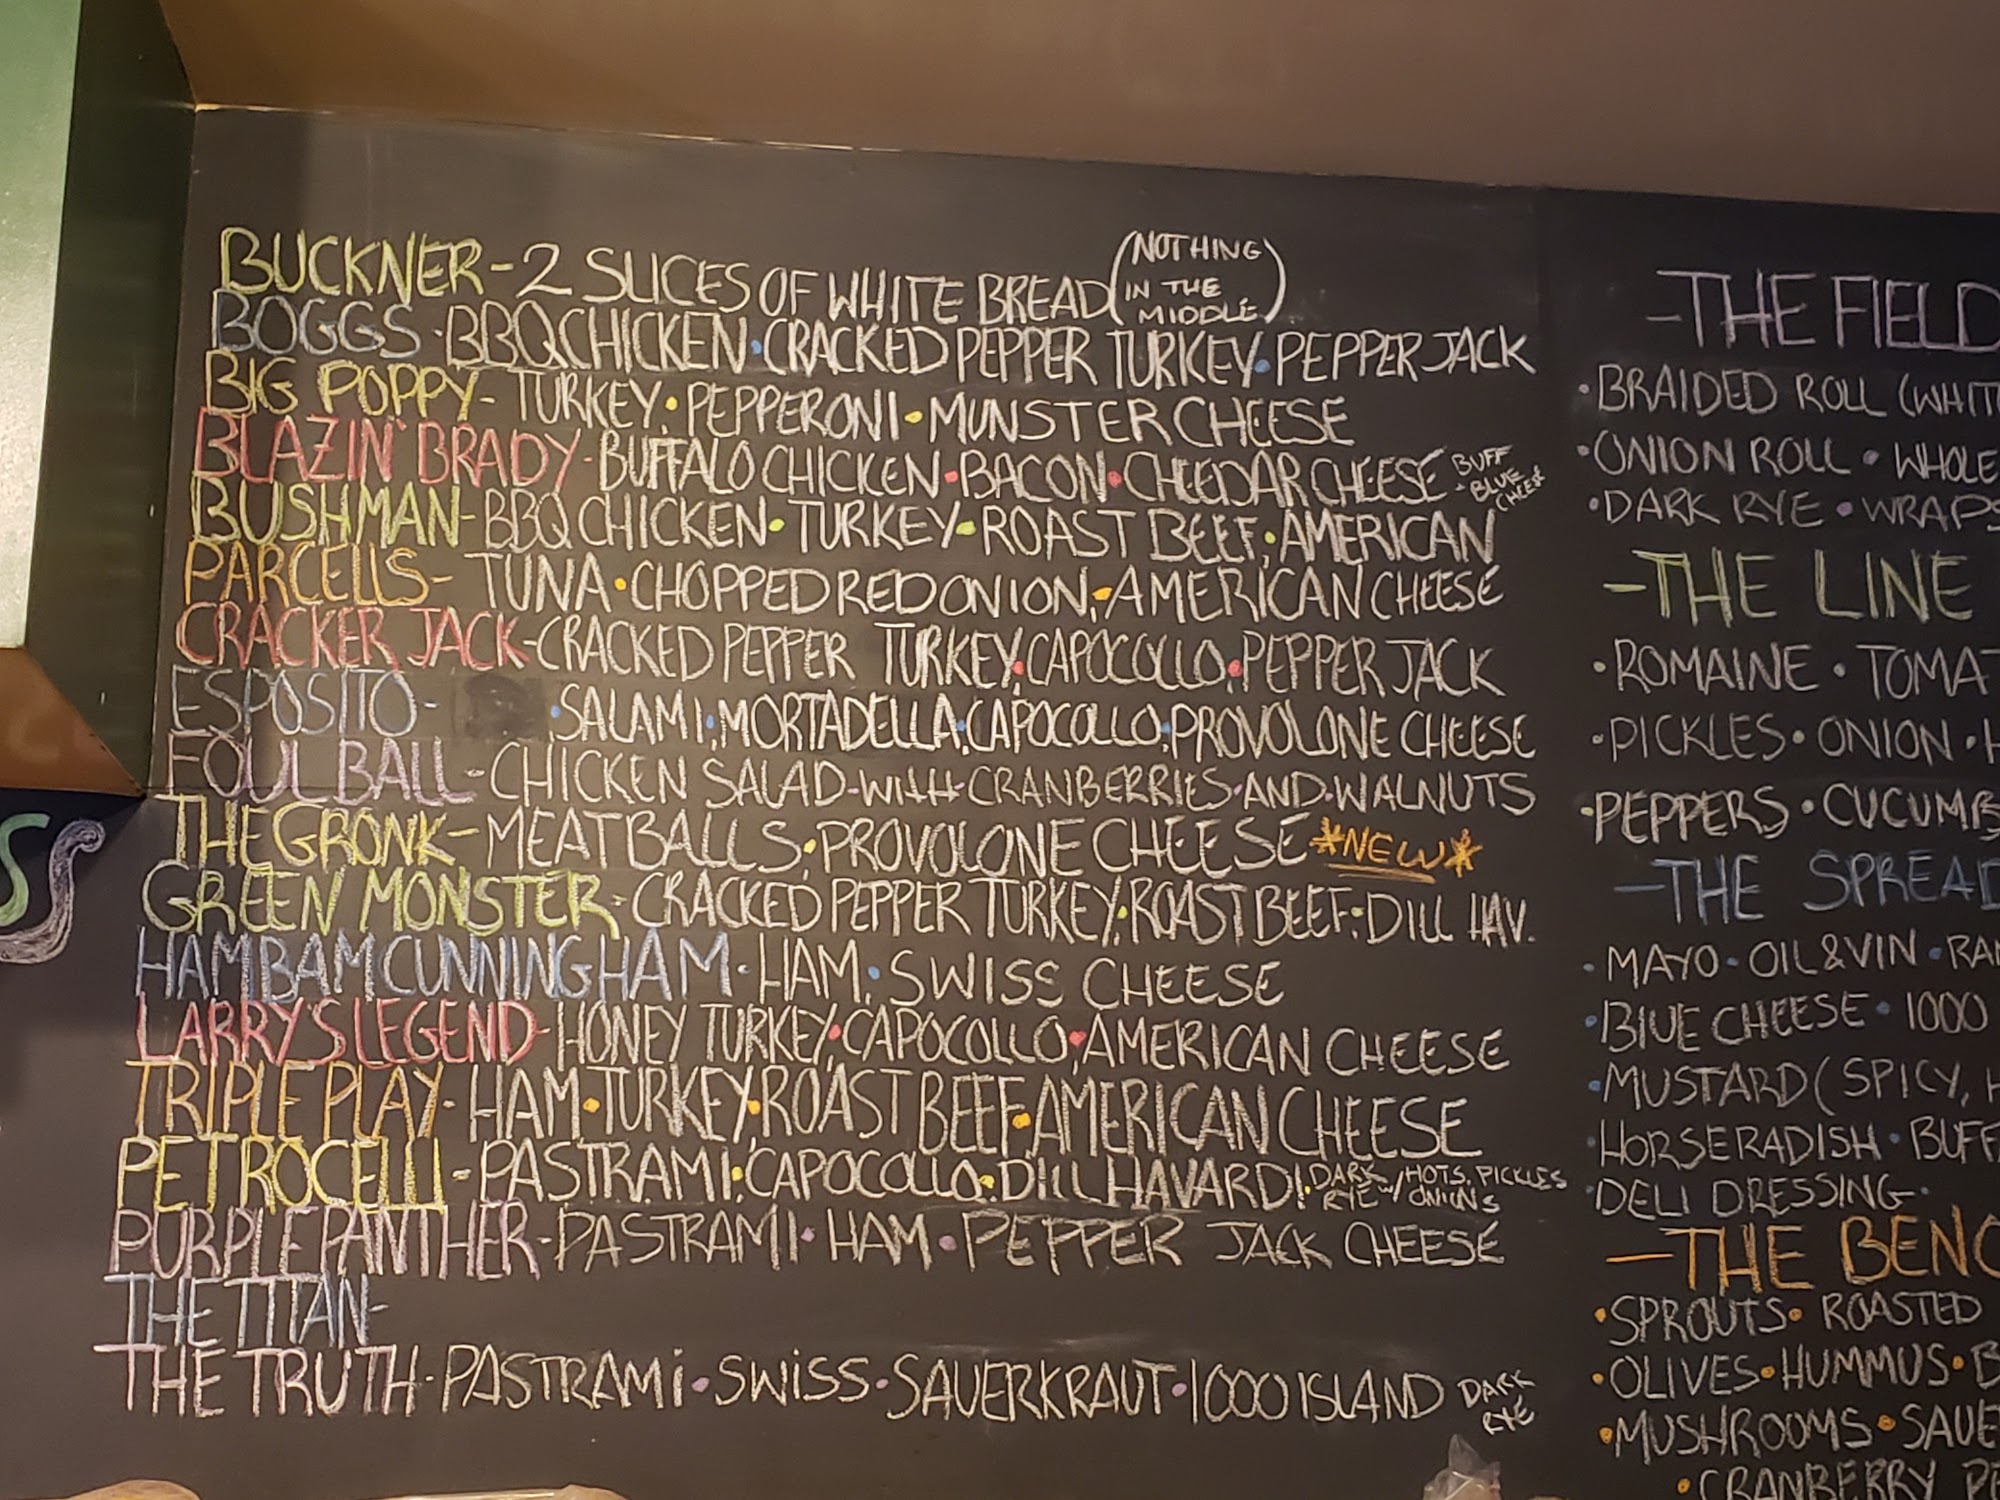 BUCKNER-2 SLICES OF WHITE BREAD (NOTHING IN THE MIDDLE)
BOGGS·BBQ CHICKEN·CRACKED PEPPER TURKEY·PEPPER JACK
BIG POPPY-TURKEY·PEPPERONI·MUNSTER CHEESE
BLAZIN' BRADY-BUFFALO CHICKEN·BACON·CHEEDAR CHEESE BUFF - BLUE CHEESE
BUSHMAN-BBQ CHICKEN·TURKEY·ROAST BEEF·AMERICAN
PARCELLS-TUNA·CHOPPED RED ONION·AMERICAN CHEESE
CRACKER JACK-CRACKED PEPPER TURKEY·CAPOCOLLO·PEPPER JACK
ESPOSITO-·SALAMI·MORTADELLA·CAPOCOLLO·PROVOLONE CHEESE
FOUL BALL-CHICKEN SALAD-WITH-CRANBERRIES·AND·WALNUTS
THE GRONK-MEATBALLS·PROVOLONE CHEESE *NEW*
GREEN MONSTER-CRACKED PEPPER TURKEY·ROAST BEEF·DILL HAV.
HAM BAM CUNNINGHAM·HAM·SWISS CHEESE
LARRY'S LEGEND-HONEY TURKEY·CAPOCOLLO·AMERICAN CHEESE
TRIPLE PLAY-HAM·TURKEY·ROAST BEEF·AMERICAN CHEESE
PETROCELLI-PASTRAMI·CAPOCOLLO·DILL HAVARDI·DARK RYE W/ HOTS, PICKLES ONIONS
PURPLE PANTHER-PASTRAMI·HAM·PEPPER JACK CHEESE
THE TITAN-
THE TRUTH·PASTRAMI·SWISS·SAUERKRAUT·1000 ISLAND DARK RYE
-THE FIELD
·BRAIDED ROLL (WHIT
·ONION ROLL·WHOLE
·DARK RYE·WRAPS
-THE LINE
·ROMAINE·TOMAT
·PICKLES·ONION·H
·PEPPERS·CUCUMB
-THE SPREAD
·MAYO·OIL&VIN·RA
·BLUE CHEESE·1000
·MUSTARD (SPICY, H
·HORSERADISH·BUFF
·DELI DRESSING·
-THE BENC
·SPROUTS·ROASTED
·OLIVES·HUMMUS·B
·MUSHROOMS·SAUE
·CRANBERRY PE